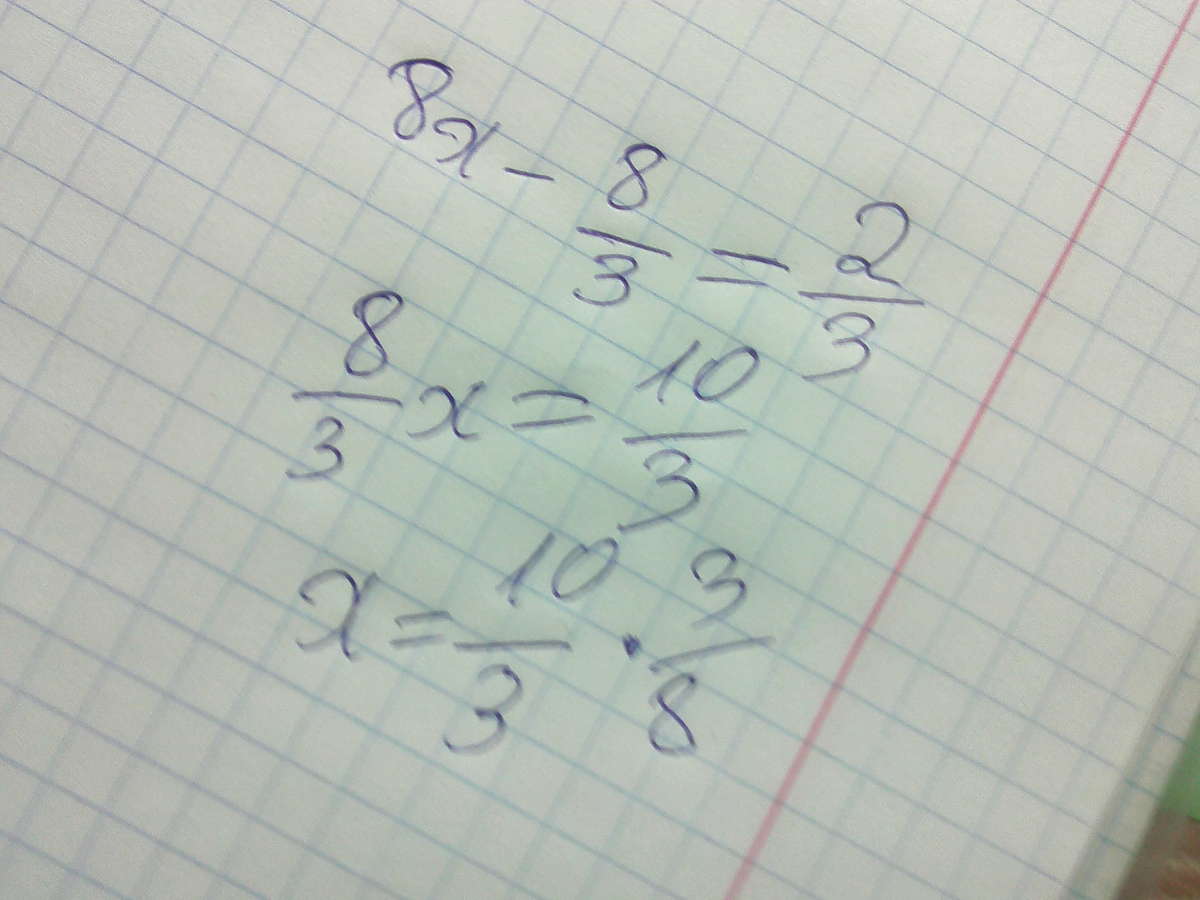 8x - 8/3 = 2/3
8/3 x = 10/3
x = 10/3 · 3/8